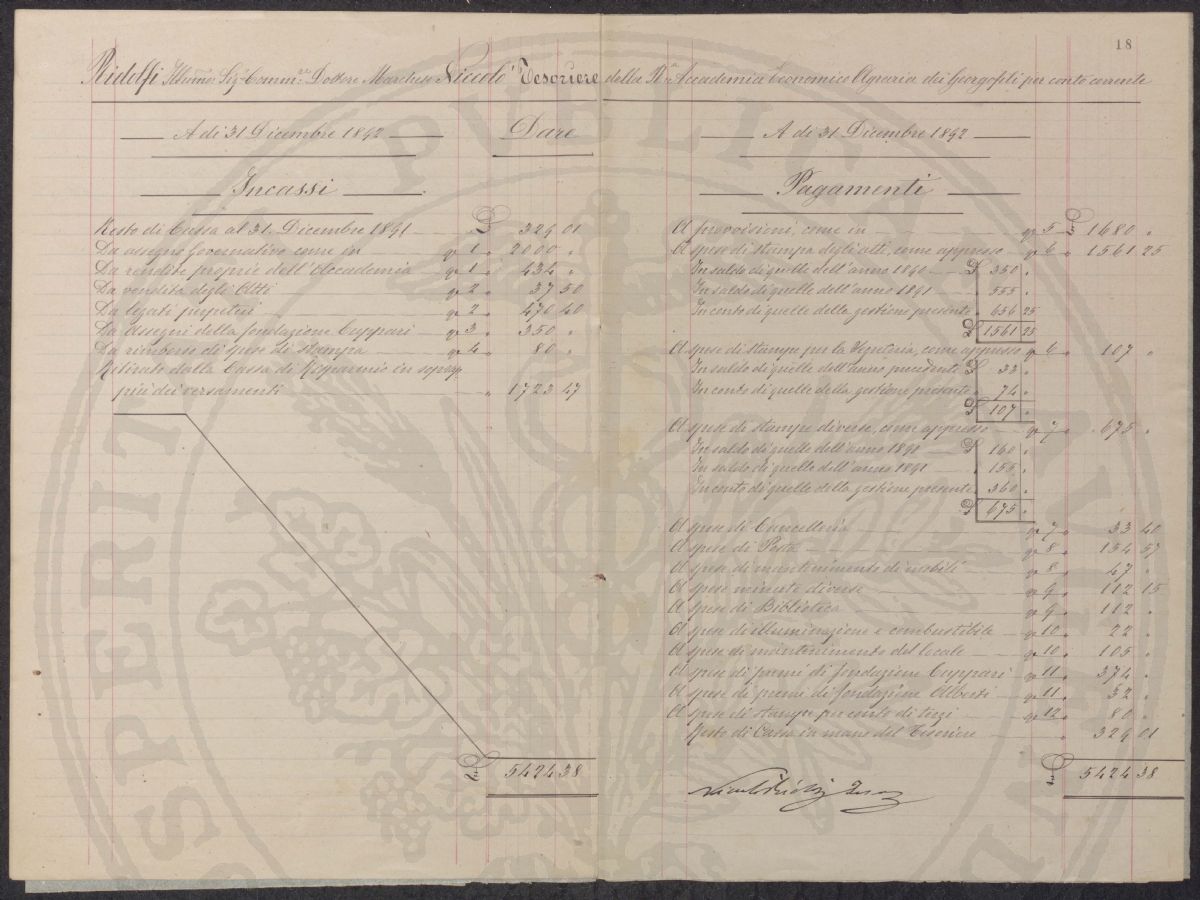 18
Ridolfi Illmo. Sig. Comm.re Dottore Marchese Niccolò Tesoriere della R. Accademia Economico Agraria dei Georgofili per conto corrente
A di 31 Dicembre 1892 Dare
Incassi
Resto di Cassa al 31 Dicembre 1891 £ 329 01
Da assegno Governativo come in p 1 " 2000 "
Da rendite proprie dell'Accademia p 1 " 434 "
Da vendita degli Atti p 2 " 37 50
Da legati perpetui p 2 " 470 40
Da assegni della fondazione Cuppari p 3 " 350 "
Da rimborso di spese di stampa p 4 " 80 "
Ritirate dalla Cassa di Risparmio in sopra
più dei versamenti " 1723 47
£ 5424 38
A di 31 Dicembre 1892
Pagamenti
A provvisioni, come in p 5 £ 1680 "
A spese di stampa degli atti, come appresso p 6 " 1561 25
In saldo di quelle dell'anno 1890 £ 350 "
In saldo di quelle dell'anno 1891 " 555 "
In conto di quelle della gestione presente " 656 25
£ 1561 25
A spese di stampe per la Segreteria, come appresso p 6 " 107 "
In saldo di quelle dell'anno precedente £ 33 "
In conto di quelle della gestione presente " 74 "
£ 107 "
A spese di stampe diverse, come appresso p 7 " 675 "
In saldo di quelle dell'anno 1891 £ 160 "
In saldo di quelle dell'anno 1891 " 155 "
In conto di quelle della gestione presente " 360 "
£ 675 "
A spese di Cancelleria p 7 " 33 40
A spese di Posta p 8 " 134 57
A spese di mantenimento di mobili p 8 " 47 "
A spese minute diverse p 9 " 112 15
A spese di Biblioteca p 9 " 112 "
A spese di illuminazione e combustibile p 10 " 22 "
A spese di mantenimento del locale p 10 " 105 "
A spese di premi di fondazione Cuppari p 11 " 374 "
A spese di premi di fondazione Alberti p 11 " 52 "
A spese di stampe per conto di terzi p 12 " 80 "
Resto di Cassa in mano del Tesoriere " 329 01
£ 5424 38
Niccolò Ridolfi Tesor